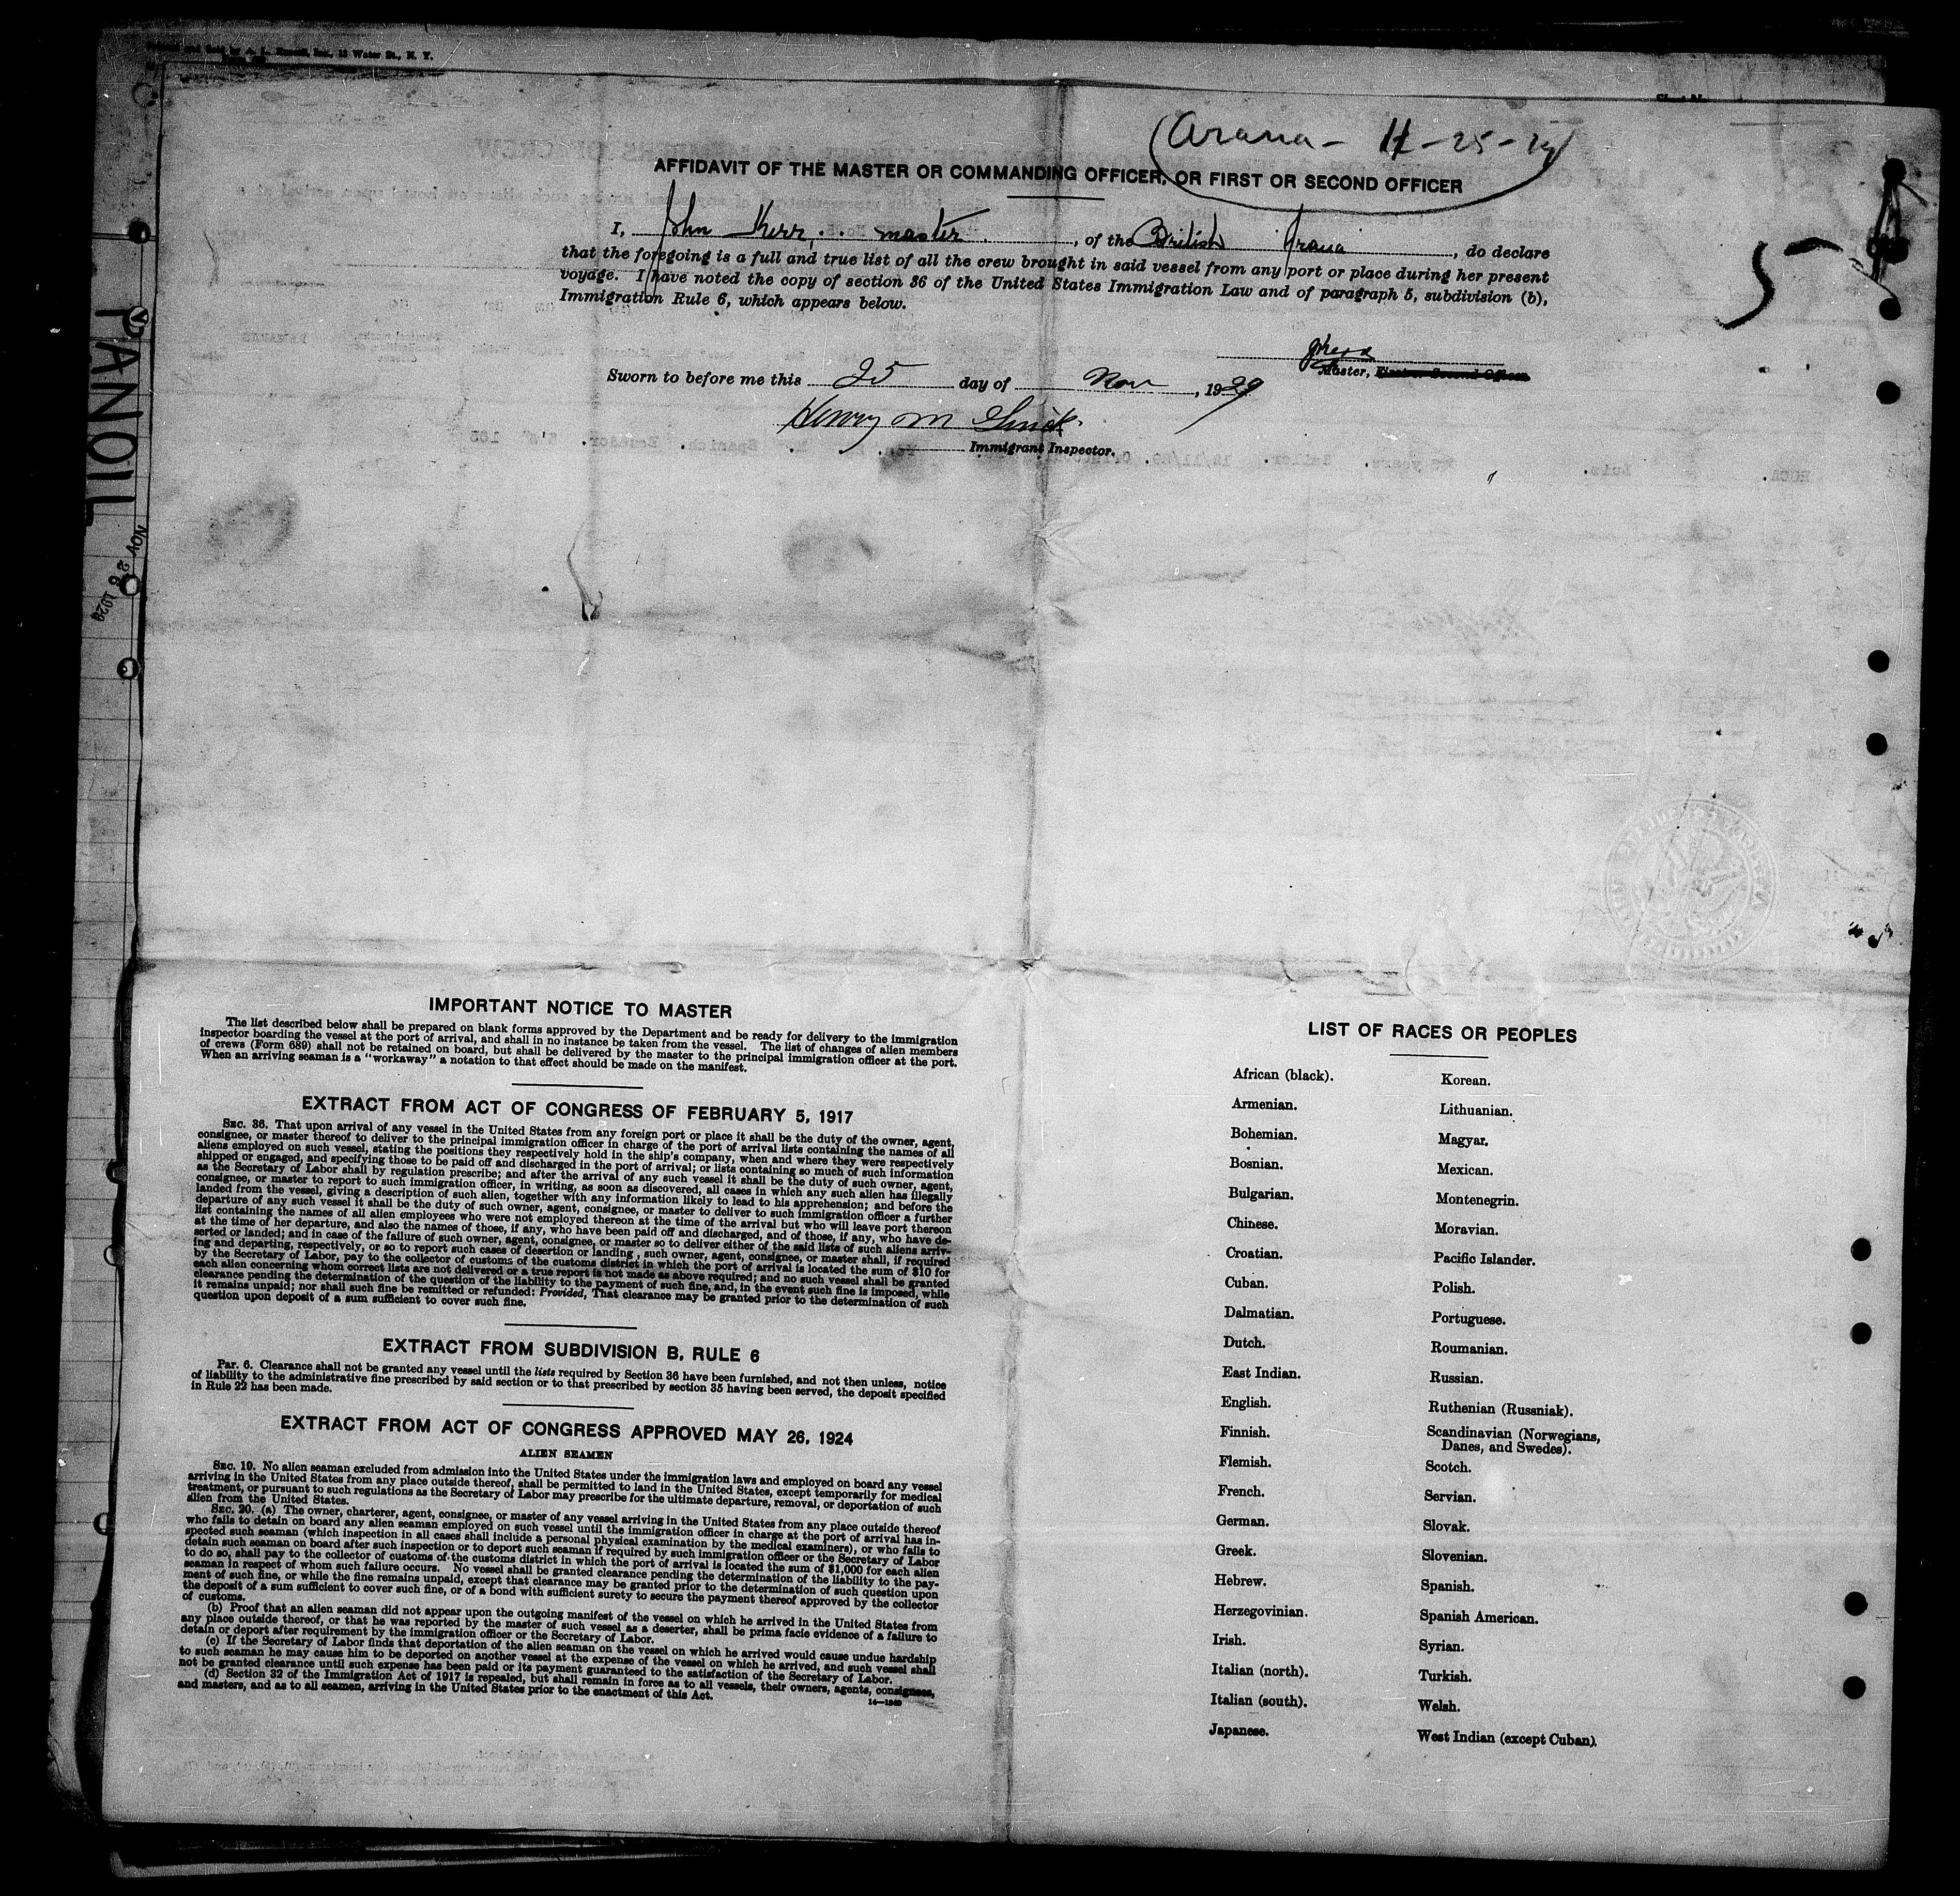 Inc., 13 Water St., N. Y.
(Arana - 11-25-29)
AFFIDAVIT OF THE MASTER OR COMMANDING OFFICER, OR FIRST OR SECOND OFFICER
I, John Kerr, master, of the British Arana, do declare
that the foregoing is a full and true list of all the crew brought in said vessel from any port or place during her present
voyage. I have noted the copy of section 36 of the United States Immigration Law and of paragraph 5, subdivision (b),
Immigration Rule 6, which appears below.
5
JKerr
Master, First or Second Officer.
Sworn to before me this 25 day of Nov, 1929
Henry M
Immigrant Inspector.
PANOIL
NOV 26 1929
IMPORTANT NOTICE TO MASTER
The list described below shall be prepared on blank forms approved by the Department and be ready for delivery to the immigration
inspector boarding the vessel at the port of arrival, and shall in no instance be taken from the vessel. The list of changes of alien members
of crews (Form 689) shall not be retained on board, but shall be delivered by the master to the principal immigration officer at the port.
When an arriving seaman is a "workaway" a notation to that effect should be made on the manifest.
EXTRACT FROM ACT OF CONGRESS OF FEBRUARY 5, 1917
SEC. 36. That upon arrival of any vessel in the United States from any foreign port or place it shall be the duty of the owner, agent,
consignee, or master thereof to deliver to the principal immigration officer in charge of the port of arrival lists containing the names of all
aliens employed on such vessel, stating the positions they respectively hold in the ship's company, when and where they were respectively
shipped or engaged, and specifying those to be paid off and discharged in the port of arrival; or lists containing so much of such information
as the Secretary of Labor shall by regulation prescribe; and after the arrival of any such vessel it shall be the duty of such owner, agent,
consignee, or master to report to such immigration officer, in writing, as soon as discovered, all cases in which any such alien has illegally
landed from the vessel, giving a description of such alien, together with any information likely to lead to his apprehension; and before the
departure of any such vessel it shall be the duty of such owner, agent, consignee, or master to deliver to such immigration officer a further
list containing the names of all alien employees who were not employed thereon at the time of the arrival but who will leave port thereon
at the time of her departure, and also the names of those, if any, who have been paid off and discharged, and of those, if any, who have de-
serted or landed; and in case of the failure of such owner, agent, consignee, or master so to deliver either of the said lists of such aliens arriv-
ing and departing, respectively, or so to report such cases of desertion or landing, such owner, agent, consignee, or master shall, if required
by the Secretary of Labor, pay to the collector of customs of the customs district in which the port of arrival is located the sum of $10 for
each alien concerning whom correct lists are not delivered or a true report is not made as above required; and no such vessel shall be granted
clearance pending the determination of the question of the liability to the payment of such fine, and, in the event such fine is imposed, while
it remains unpaid; nor shall such fine be remitted or refunded: Provided, That clearance may be granted prior to the determination of such
question upon deposit of a sum sufficient to cover such fine.
EXTRACT FROM SUBDIVISION B, RULE 6
Par. 6. Clearance shall not be granted any vessel until the lists required by Section 36 have been furnished, and not then unless, notice
of liability to the administrative fine prescribed by said section or to that prescribed by section 35 having been served, the deposit specified
in Rule 22 has been made.
EXTRACT FROM ACT OF CONGRESS APPROVED MAY 26, 1924
ALIEN SEAMEN
SEC. 19. No alien seaman excluded from admission into the United States under the immigration laws and employed on board any vessel
arriving in the United States from any place outside thereof, shall be permitted to land in the United States, except temporarily for medical
treatment, or pursuant to such regulations as the Secretary of Labor may prescribe for the ultimate departure, removal, or deportation of such
alien from the United States.
SEC. 20. (a) The owner, charterer, agent, consignee, or master of any vessel arriving in the United States from any place outside thereof
who fails to detain on board any alien seaman employed on such vessel until the immigration officer in charge at the port of arrival has in-
spected such seaman (which inspection in all cases shall include a personal physical examination by the medical examiners), or who fails to
detain such seaman on board after such inspection or to deport such seaman if required by such immigration officer or the Secretary of Labor
to do so, shall pay to the collector of customs of the customs district in which the port of arrival is located the sum of $1,000 for each alien
seaman in respect of whom such failure occurs. No vessel shall be granted clearance pending the determination of the liability to the pay-
ment of such fine, or while the fine remains unpaid, except that clearance may be granted prior to the determination of such question upon
the deposit of a sum sufficient to cover such fine, or of a bond with sufficient surety to secure the payment thereof approved by the collector
of customs.
(b) Proof that an alien seaman did not appear upon the outgoing manifest of the vessel on which he arrived in the United States from
any place outside thereof, or that he was reported by the master of such vessel as a deserter, shall be prima facie evidence of a failure to
detain or deport after requirement by the immigration officer or the Secretary of Labor.
(c) If the Secretary of Labor finds that deportation of the alien seaman on the vessel on which he arrived would cause undue hardship
to such seaman he may cause him to be deported on another vessel at the expense of the vessel on which he arrived, and such vessel shall
not be granted clearance until such expense has been paid or its payment guaranteed to the satisfaction of the Secretary of Labor.
(d) Section 32 of the Immigration Act of 1917 is repealed, but shall remain in force as to all vessels, their owners, agents, consignees,
and masters, and as to all seamen, arriving in the United States prior to the enactment of this Act.
LIST OF RACES OR PEOPLES
African (black).
Armenian.
Bohemian.
Bosnian.
Bulgarian.
Chinese.
Croatian.
Cuban.
Dalmatian.
Dutch.
East Indian.
English.
Finnish.
Flemish.
French.
German.
Greek.
Hebrew.
Herzegovinian.
Irish.
Italian (north).
Italian (south).
Japanese.
Korean.
Lithuanian.
Magyar.
Mexican.
Montenegrin.
Moravian.
Pacific Islander.
Polish.
Portuguese.
Roumanian.
Russian.
Ruthenian (Russniak).
Scandinavian (Norwegians,
Danes, and Swedes).
Scotch.
Servian.
Slovak.
Slovenian.
Spanish.
Spanish American.
Syrian.
Turkish.
Welsh.
West Indian (except Cuban).